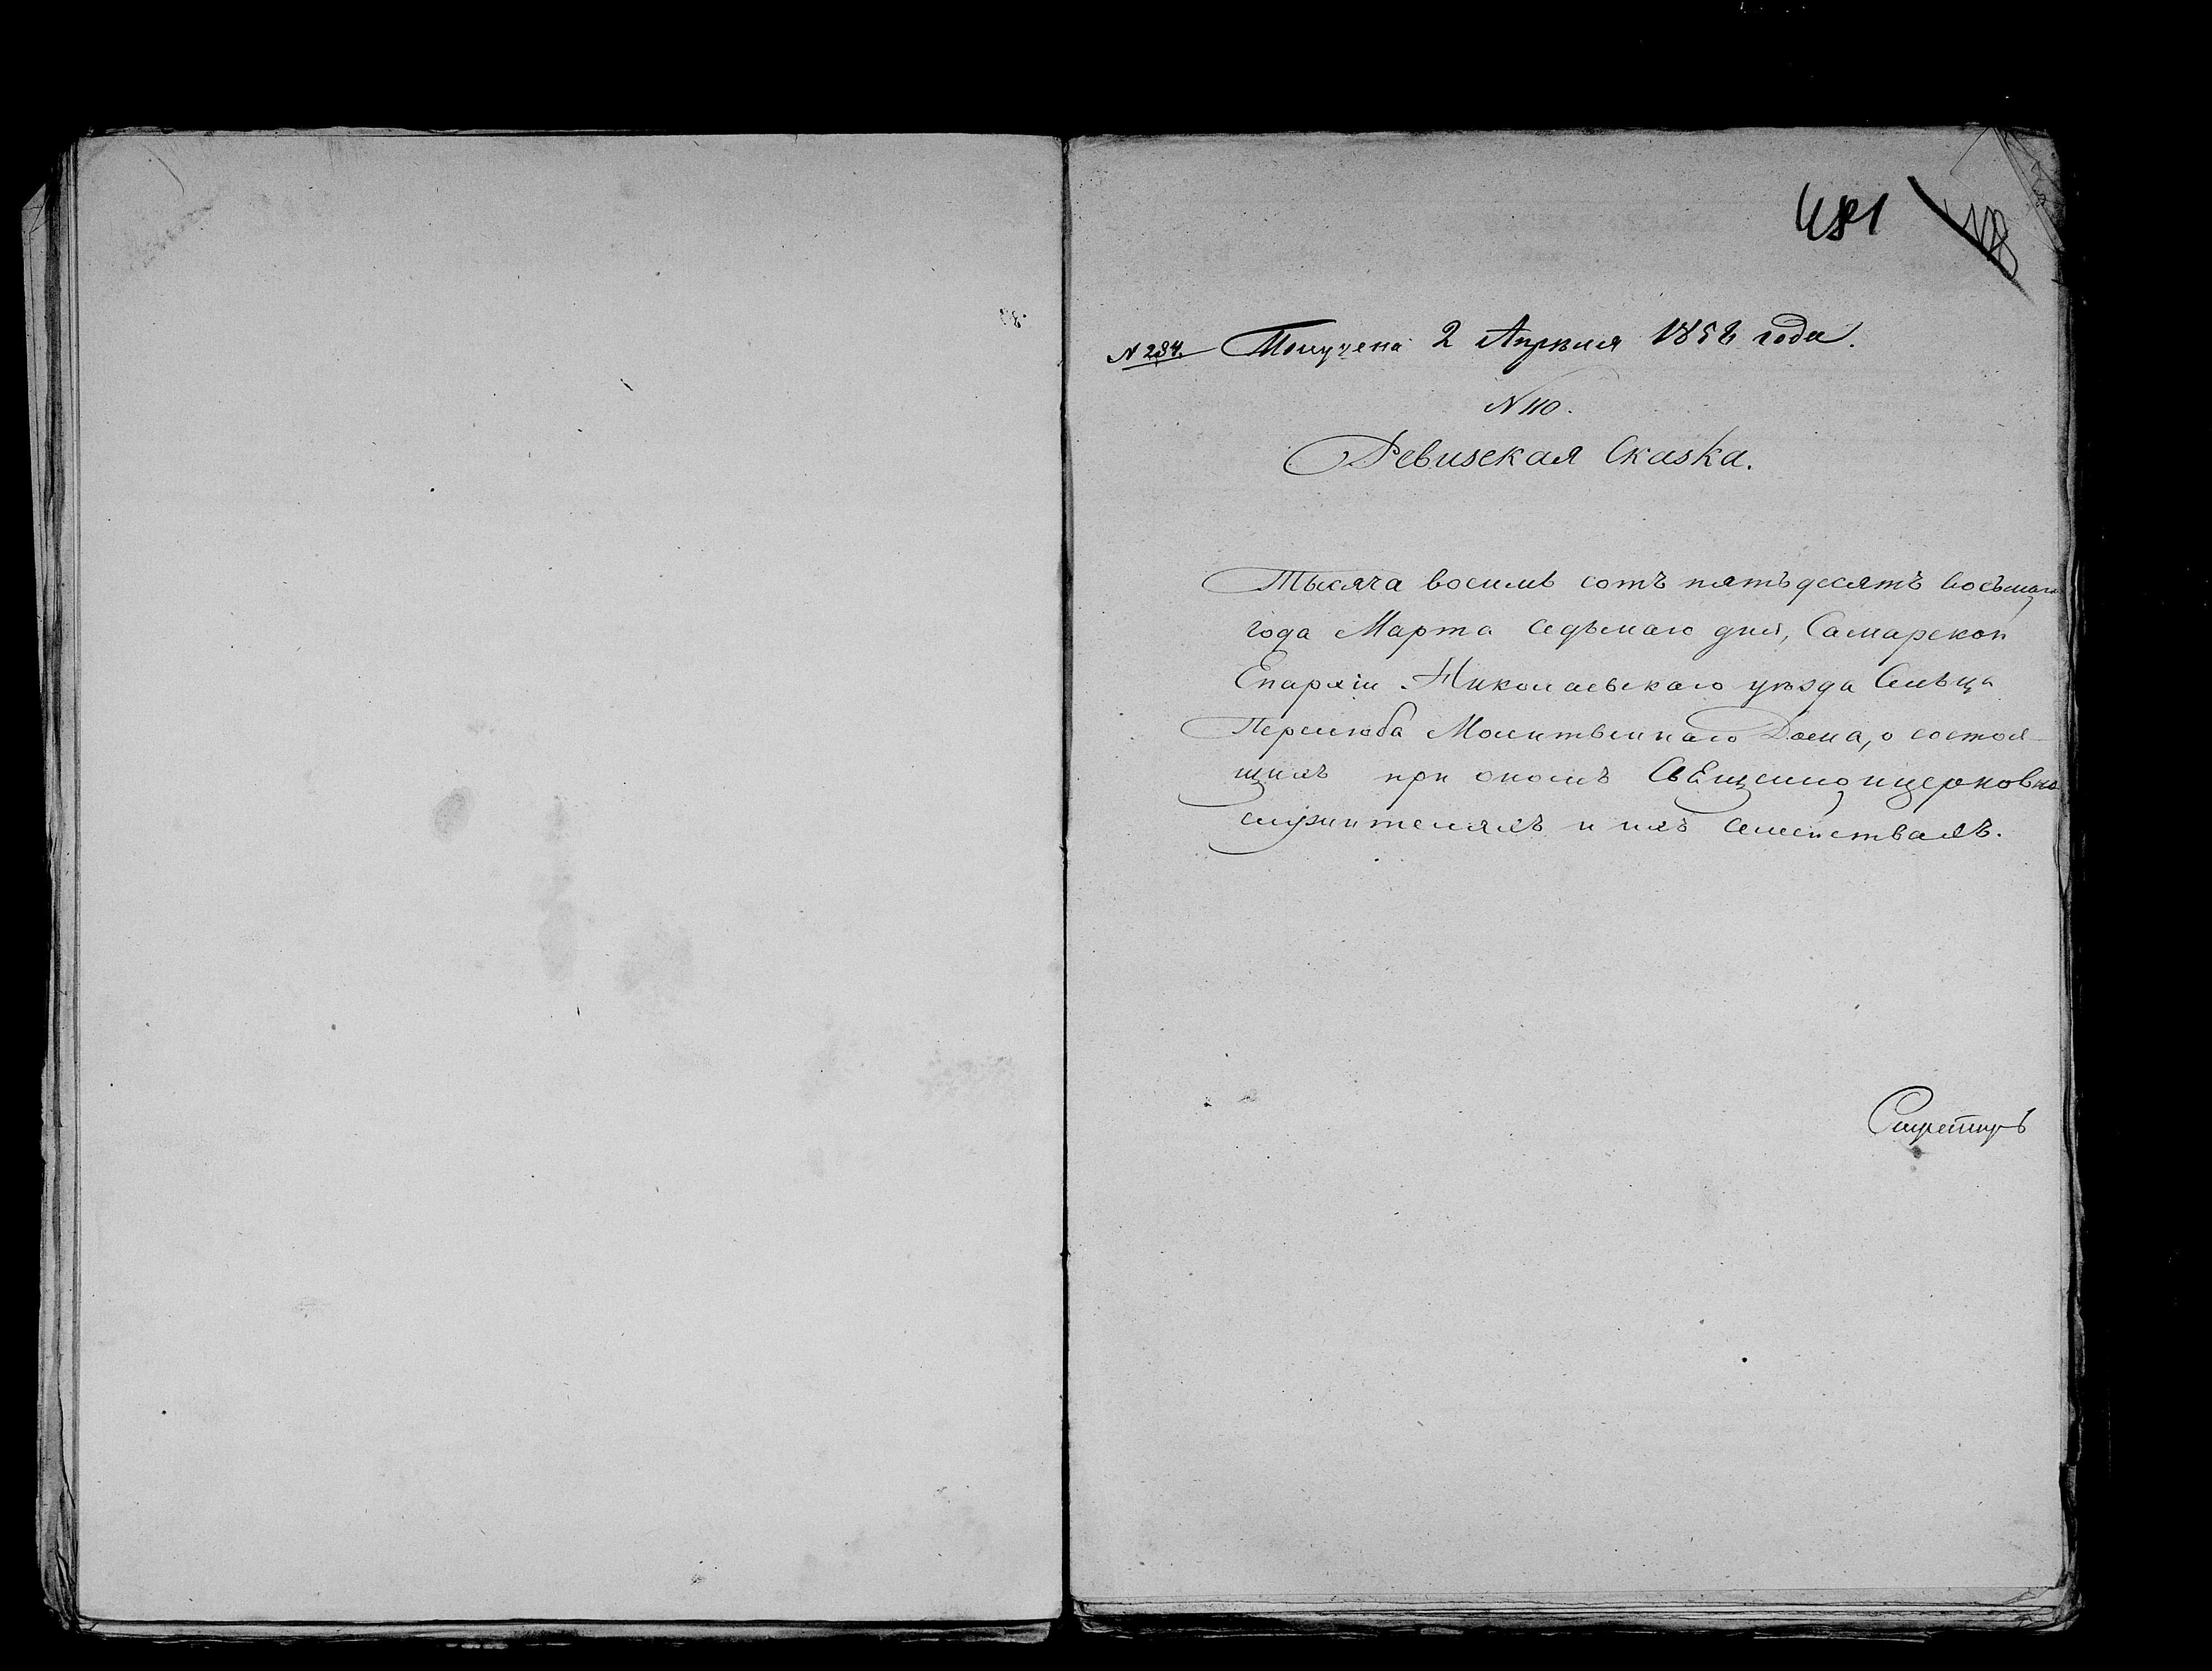 481
№ 284. Получена 2 Апрѣля 1858 года.
№ 110.
Ревизская Сказка.
Тысяча восимь сотъ пятьдесятъ восьмаго
года Марта седьмаго дня, Самарской
Епархіи Николаевскаго уѣзда Сельца
Перелюба Молитвеннаго Дома, о состоя-
щихъ при ономъ Священноицерковно
служителяхъ и ихъ семействахъ.
Секретарь